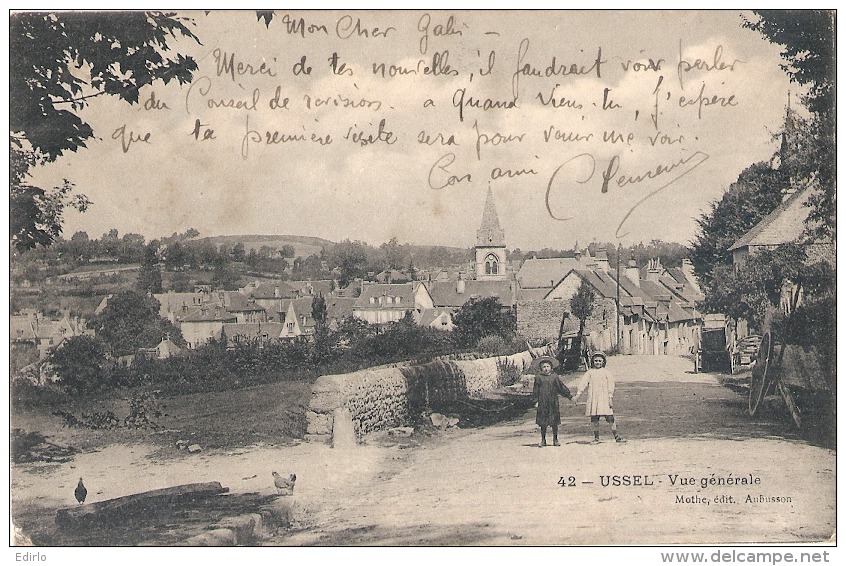 Mon Cher Gabi –
Merci de tes nouvelles, il faudrait voir perler
du Conseil de revision. a quand viens-tu, J'espère
que ta première visite sera pour venir me voir.
Ton ami Clemenin
42 – USSEL - Vue générale
Mothe, édit. Aubusson
Edirlo
http://www.delcampe.net